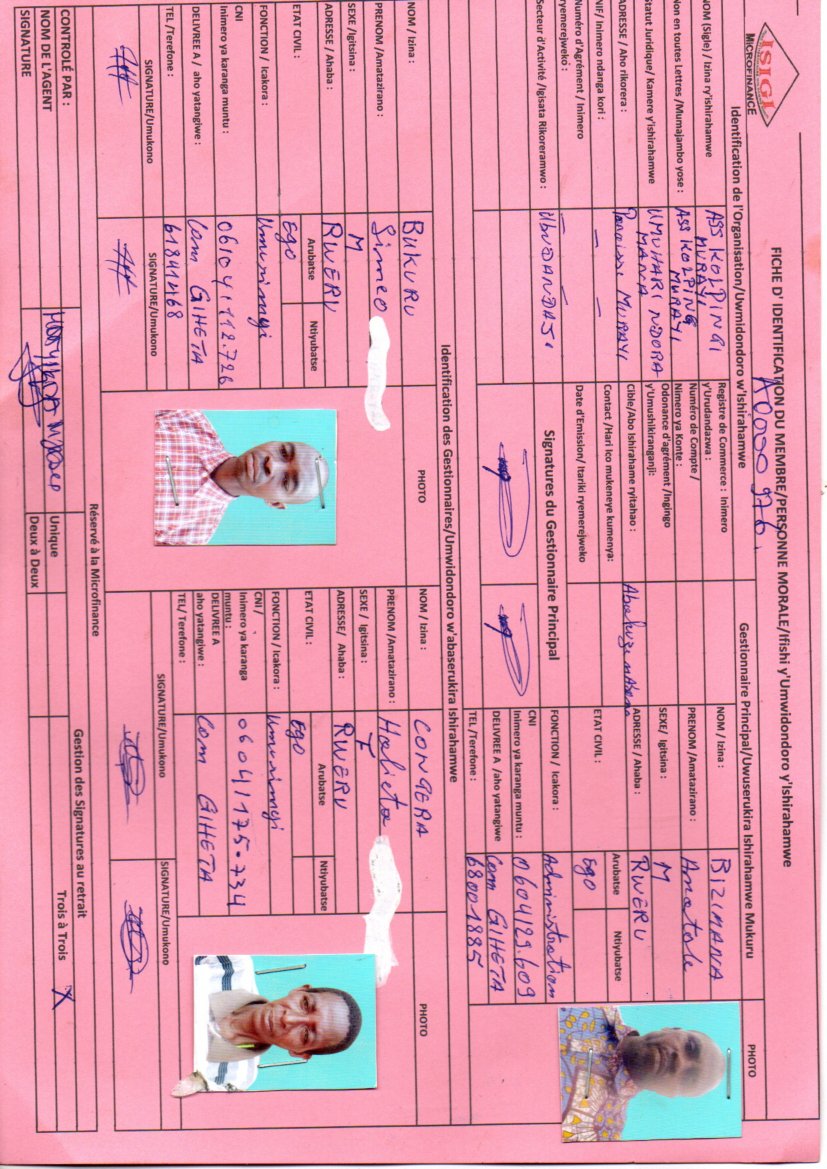 ISIGI
MICROFINANCE
FICHE D' IDENTIFICATION DU MEMBRE/PERSONNE MORALE/Ifishi y'Umwidondoro y'Ishirahamwe
A0000 976.
Identification de l'Organisation/Uwmidondoro w'Ishirahamwe
NOM (Sigle) / Izina ry'ishirahamwe
ASS KOLPINGI MURAYI
Nom en toutes Lettres /Mumajambo yose :
ASS KOLPING MURAYI
Statut Juridique/ Kamere y'ishirahamwe
UMUHARI NDORA MANA
ADRESSE / Aho rikorera :
Paroisse MURAYI
NIF/ Inimero ndanga kori :
Numéro d'Agrément / Inimero ryemerejwekó :
Secteur d'Activité /Igisata Rikoreramwo :
UbuDANDAJI
Registre de Commerce : Inimero y'Urudandazwa :
Numéro de Compte / Nimero ya Konte :
Odonance d'agrément /Ingingo y'Umushikiranganji:
Cible/Abo Ishirahame ryitahao :
Contact /Hari Ico mukeneye kumenya:
Date d'Emission/ Itariki ryemerejweko
Signatures du Gestionnaire Principal
Gestionnaire Principal/Uwuserukira Ishirahamwe Mukuru
PHOTO
NOM / Izina :
BIZIMANA
PRENOM /Amatazirano :
Anatole
SEXE/ Igitsina :
M
ADRESSE / Ahaba :
RWERU
ETAT CIVIL :
Arubatse
Ntiyubatse
Ego
FONCTION / Icakora :
Administration
CNI
Inimero ya karanga muntu :
0604/29.609
DELIVREE A /aho yatangiwe
Com GIHETA
TEL /Terefone :
68001885
Identification des Gestionnaires/Umwidondoro w'abaserukira Ishirahamwe
NOM / Izina :
BUKURU
PHOTO
PRENOM /Amatazirano :
Simeo
SEXE /Igitsina :
M
ADRESSE / Ahaba :
RWERU
ETAT CIVIL :
Arubatse
Ntiyubatse
Ego
FONCTION / Icakora :
Umurimyi
CNI
Inimero ya karanga muntu :
0604/112.726
DELIVREE A / aho yatangiwe :
Com GIHETA
TEL /Terefone :
61841468
SIGNATURE/Umukono
SIGNATURE/Umukono
NOM / Izina :
CONGERA
PHOTO
PRENOM /Amatazirano :
SEXE / Igitsina :
F
ADRESSE/ Ahaba :
RWERU
ETAT CIVIL :
Arubatse
Ntiyubatse
Ego
FONCTION / Icakora :
Umurimyi
CNI /
Inimero ya karanga muntu :
0604/175.734
DELIVREE A
aho yatangiwe :
Com GIHETA
TEL/ Terefone :
SIGNATURE/Umukono
SIGNATURE/Umukono
Réservé à la Microfinance
CONTROLÉ PAR :
NOM DE L'AGENT
SIGNATURE
Gestion des Signatures au retrait
Unique
Deux à Deux
Trois à Trois
X